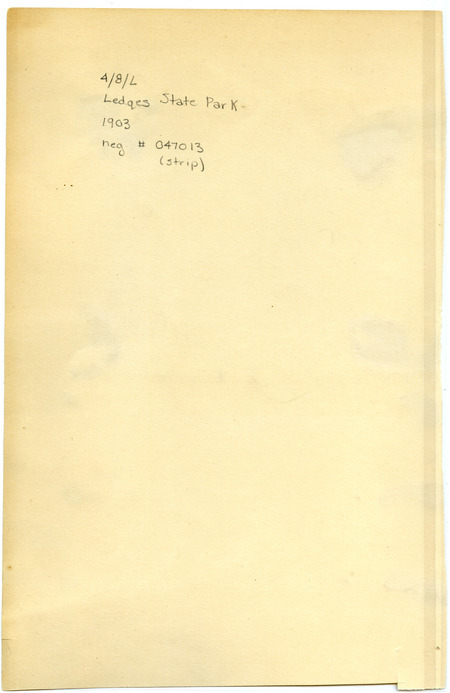 4/8/L
Ledges State Park-
1903
neg # 047013
(strip)